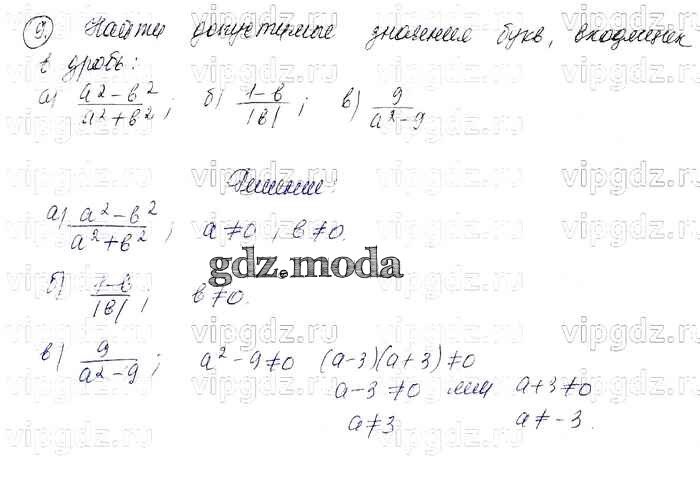 9. Найти допустимые значения букв, входящих
в дробь:
а) a²-b²/a²+b²; б) 1-b/|b|; в) 9/a²-9
Решение:
а) a²-b²/a²+b²; a≠0, b≠0.
gdz.moda
б) 1-b/|b|, b≠0.
в) 9/a²-9; a²-9≠0 (a-3)(a+3)≠0
a-3≠0 или a+3≠0
a≠3 a≠-3.
vipgdz.ru